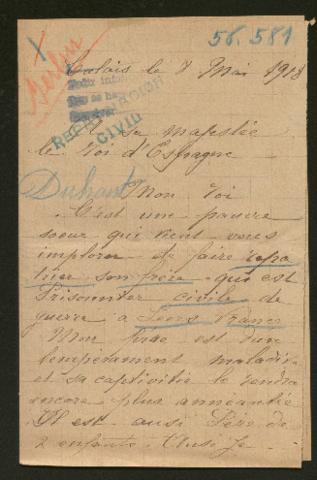 X
56.581
Berlin
Calais le 7 Mai 1918
Pedir infor
REPATRIACION
CIVIL
A sa majestée
le Roi d'Espagne
Duhant
Mon Roi
C'est une pauvre
soeur qui vient vous
implorer de faire rapa
trier son frère qui est
Prisonnier civile de
guerre a Lens France
Mon frère est d'un
tempérament maladive
et sa captivitié le rendra
encore plus anéantie
Il est aussi Père de
2 enfants. Aussi je